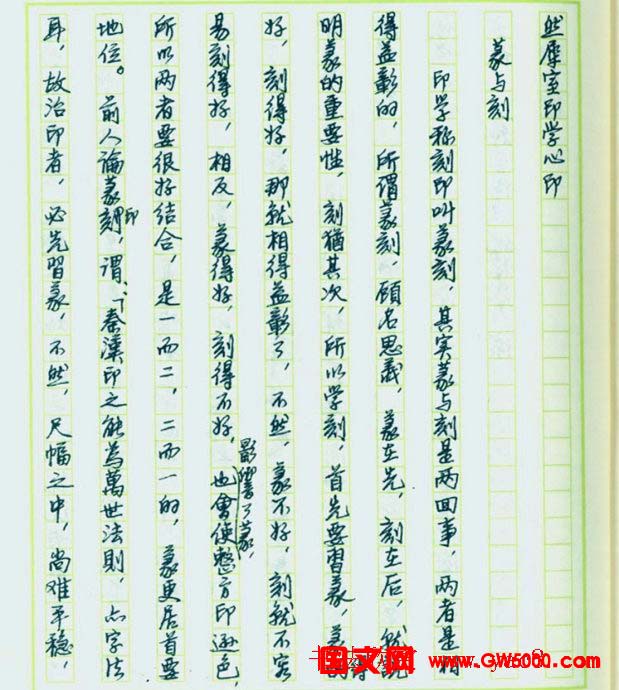 然犀室印学心印
篆与刻
印学称刻印叫篆刻，其实篆与刻是两回事，两者是相
得益彰的，所谓篆刻，顾名思义，篆在先，刻在后，就说
明篆的重要性，刻猶其次，所以学刻，首先要習篆，篆得
好，刻得好，那就相得益彰了，不然，篆不好，刻就不容
易刻得好，相反，篆得好，刻得不好，影响了篆，也會使整方印逊色，
所以两者要很好结合，是一而二，二而一的，篆更居首要
地位。前人論篆刻印，谓：「秦漢印之能為萬世法則，亦字法
耳，故治印者，必先習篆，不然，尺幅之中，尚难平稳，
图文网 www.GW5000.com